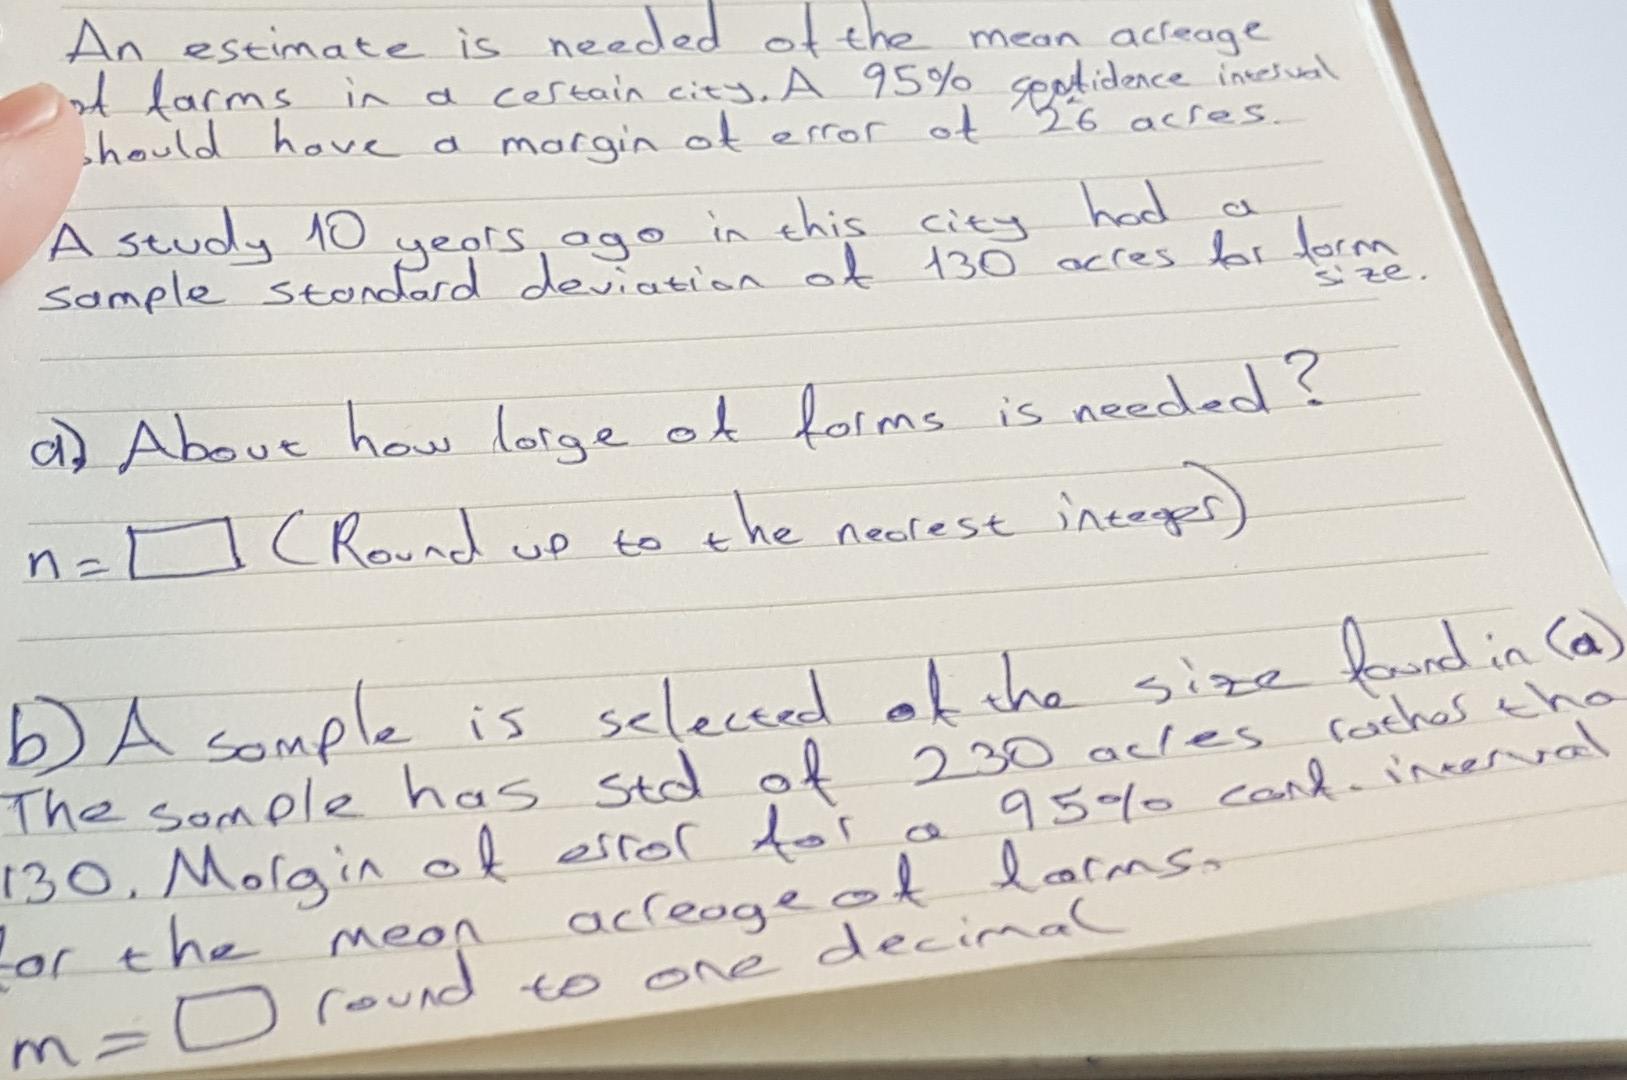 An estimate is needed of the mean acreage
of farms in a certain city. A 95% confidence interval
should have a margin of error of 26 acres.
A study 10 years ago in this city had a
sample standard deviation of 130 acres for farm
size.
a) About how large of farms is needed?
n= (Round up to the nearest integer)
b) A sample is selected of the size found in (a)
The sample has std of 230 acres rathes tha
130. Margin of error for a 95% conf. interval
for the mean acreage of farms.
m= round to one decimal